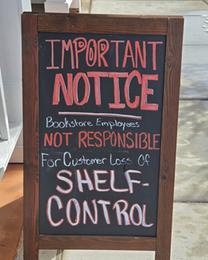 IMPORTANT
NOTICE
Bookstore Employees
NOT RESPONSIBLE
For Customer Loss Of
SHELF-
CONTROL